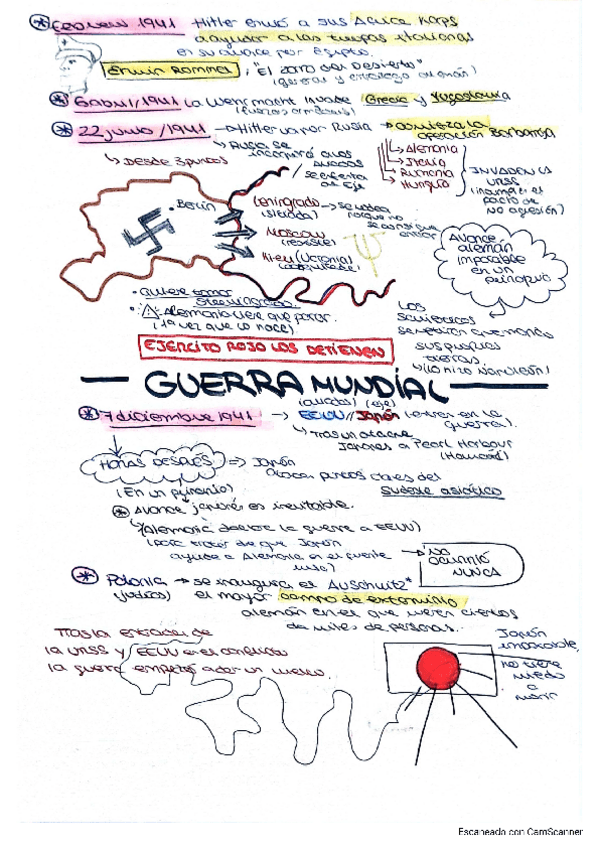 Febrero 1941 Hitler envió a sus Africa Korps
a ayudar a las tropas italianas
en su avance por Egipto.
Erwin Rommel, "El zorro del desierto"
(general y estratega alemán)
6 abril/1941 La Wehrmacht invade Grecia y Yugoslavia
(fuerzas armadas)
22 junio/1941 → Hitler va por Rusia → comienza la
operación Barbarroja
↳ Rusia se
incorpora a los
aliados
↳ Desde 3 puntos
se enfrenta
al Eje
Alemania
Italia
Rumania
Hungría
INVADEN LA
URSS
(incumple el
pacto de
no agresión)
Berlín
Leningrado
(sitiada)
→ se rodea
porque no
se consigue
entrar
Moscow
(resiste)
Kiev (Ucrania)
(conquistada)
Avance
alemán
imparable
en un
principio
• Quiere tomar
Stalingrado.
• Alemania tiene que parar.
(1ª vez que lo hace)
Los
soviéticos
se retiran quemando
sus propias
tierras.
↳ (Lo hizo Napoleón)
EJERCITO ROJO LOS DETIENEN
GUERRA MUNDIAL
(aliados) (eje)
7 diciembre 1941 → EEUU // Japón (entran en la
guerra).
↳ Tras un ataque
Japonés a Pearl Harbour
(Hawaii)
HORAS DESPUÉS => Japón
ataca puntos claves del
sudeste asiático
(En un principio)
Avance japonés es inevitable.
↳ Alemania declara la guerra a EEUU
(para tratar de que Japón
ayude a Alemania en el frente
ruso)
→ No
ocurrió
NUNCA
Polonia → se inaugura el Auschwitz*
(judíos) el mayor campo de exterminio
alemán en el que mueren cientos
de miles de personas.
Tras la entrada de
la URSS y EEUU en el conflicto
la guerra empezó a dar un vuelco.
Japón
imparable,
no tiene
miedo
a
morir
Escaneado con CamScanner